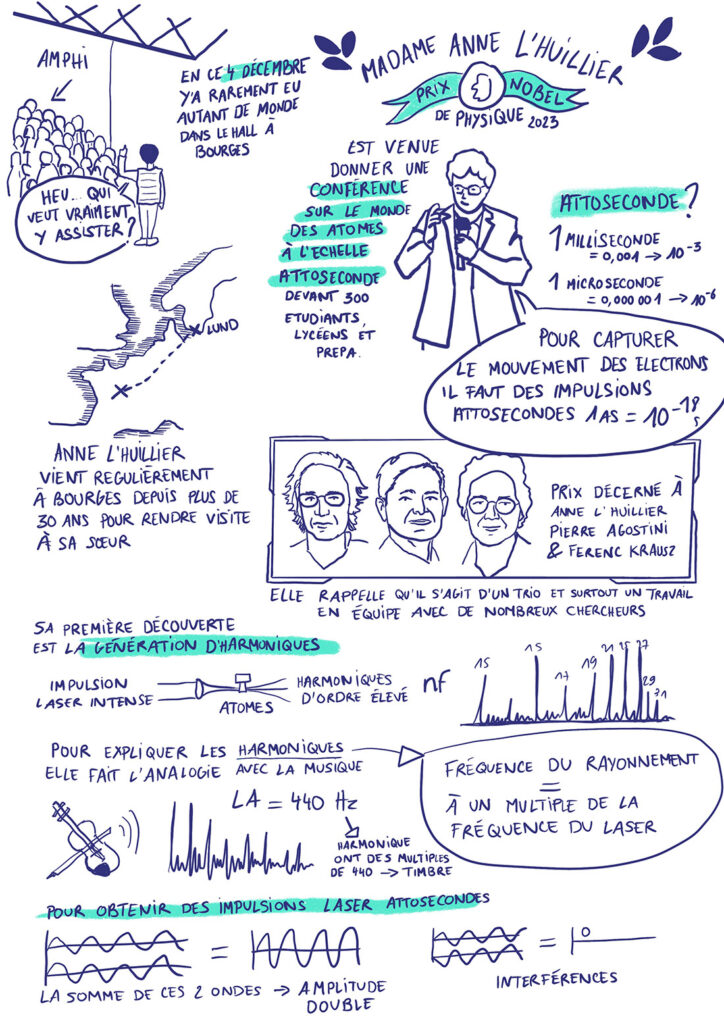 AMPHI
EN CE 4 DÉCEMBRE
Y'A RAREMENT EU
AUTANT DE MONDE
DANS LE HALL À
BOURGES
HEU... QUI
VEUT VRAIMENT
Y ASSISTER?
MADAME ANNE L'HUILLIER
PRIX NOBEL
DE PHYSIQUE 2023
EST VENUE
DONNER UNE
CONFÉRENCE
SUR LE MONDE
DES ATOMES
À L'ECHELLE
ATTOSECONDE
DEVANT 300
ETUDIANTS,
LYCÉENS ET
PREPA.
ATTOSECONDE?
1 MILLISECONDE
= 0,001 → 10⁻³
1 MICROSECONDE
= 0,000 001 → 10⁻⁶
POUR CAPTURER
LE MOUVEMENT DES ELECTRONS
IL FAUT DES IMPULSIONS
ATTOSECONDES 1 AS = 10⁻¹⁸ s
LUND
ANNE L'HUILLIER
VIENT REGULIÈREMENT
À BOURGES DEPUIS PLUS DE
30 ANS POUR RENDRE VISITE
À SA SŒUR
PRIX DÉCERNÉ À
ANNE L'HUILLIER
PIERRE AGOSTINI
& FERENC KRAUSZ
ELLE RAPPELLE QU'IL S'AGIT D'UN TRIO ET SURTOUT UN TRAVAIL
EN ÉQUIPE AVEC DE NOMBREUX CHERCHEURS
SA PREMIÈRE DÉCOUVERTE
EST LA GÉNÉRATION D'HARMONIQUES
IMPULSION
LASER INTENSE
ATOMES
HARMONIQUES
D'ORDRE ÉLEVÉ
nf
15 15 17 19 21 25 27 29 31
POUR EXPLIQUER LES HARMONIQUES
ELLE FAIT L'ANALOGIE AVEC LA MUSIQUE
FRÉQUENCE DU RAYONNEMENT
=
À UN MULTIPLE DE LA
FRÉQUENCE DU LASER
LA = 440 Hz
HARMONIQUE
ONT DES MULTIPLES
DE 440 → TIMBRE
POUR OBTENIR DES IMPULSIONS LASER ATTOSECONDES
=
= 0
LA SOMME DE CES 2 ONDES → AMPLITUDE
DOUBLE
INTERFÉRENCES